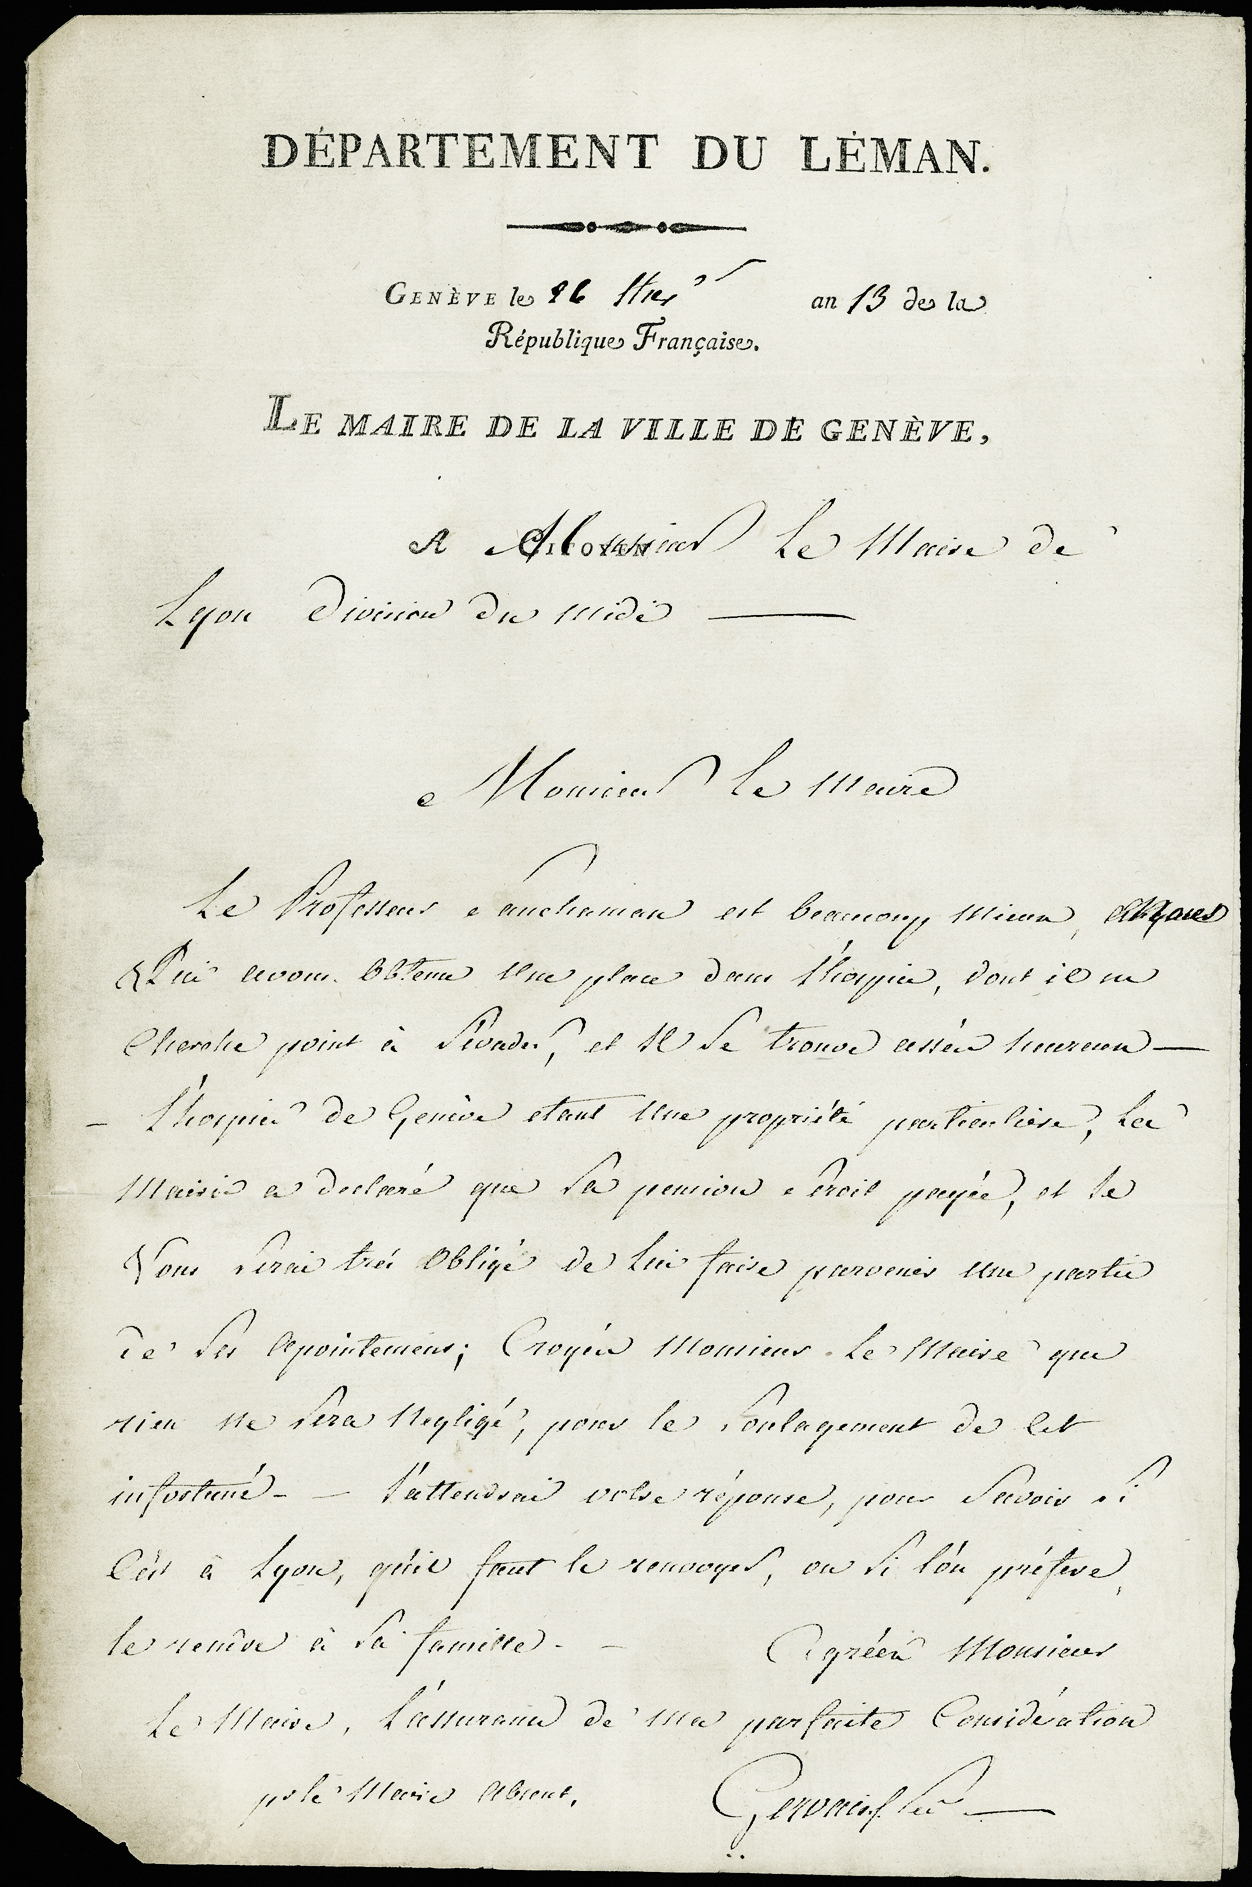 DÉPARTEMENT DU LÉMAN.
GENÈVE le 26 an 13 de la
République Française.
LE MAIRE DE LA VILLE DE GENÈVE,
A Monsieur Le Maire de
Lyon Division du midi
Monsieur le Maire
Le Professeur est beaucoup mieux,
Lui avons obtenu une place dans l'hospice, dont il ne
Cherche point à S'évader, et Il Se trouve assés heureux —
- l'hospice de Genève etant Une propriété particulière, La
Mairie a declaré que Sa pension Seroit payée, et Je
Vous Serai trés Obligé de lui faire parvenir une partie
de Ses Apointemens; Croyés Monsieur Le Maire que
rien ne Sera Negligé, pour le Soulagement de Cet
infortuné - — J'attendrai votre réponse, pour Savoir Si
C'est à Lyon, qu'il faut le renvoyer, ou Si l'on préfere,
le rendre à Sa famille - — Agréés Monsieur
Le Maire, L'assurance de ma parfaite Considération
pr le Maire Absent,
Gervais